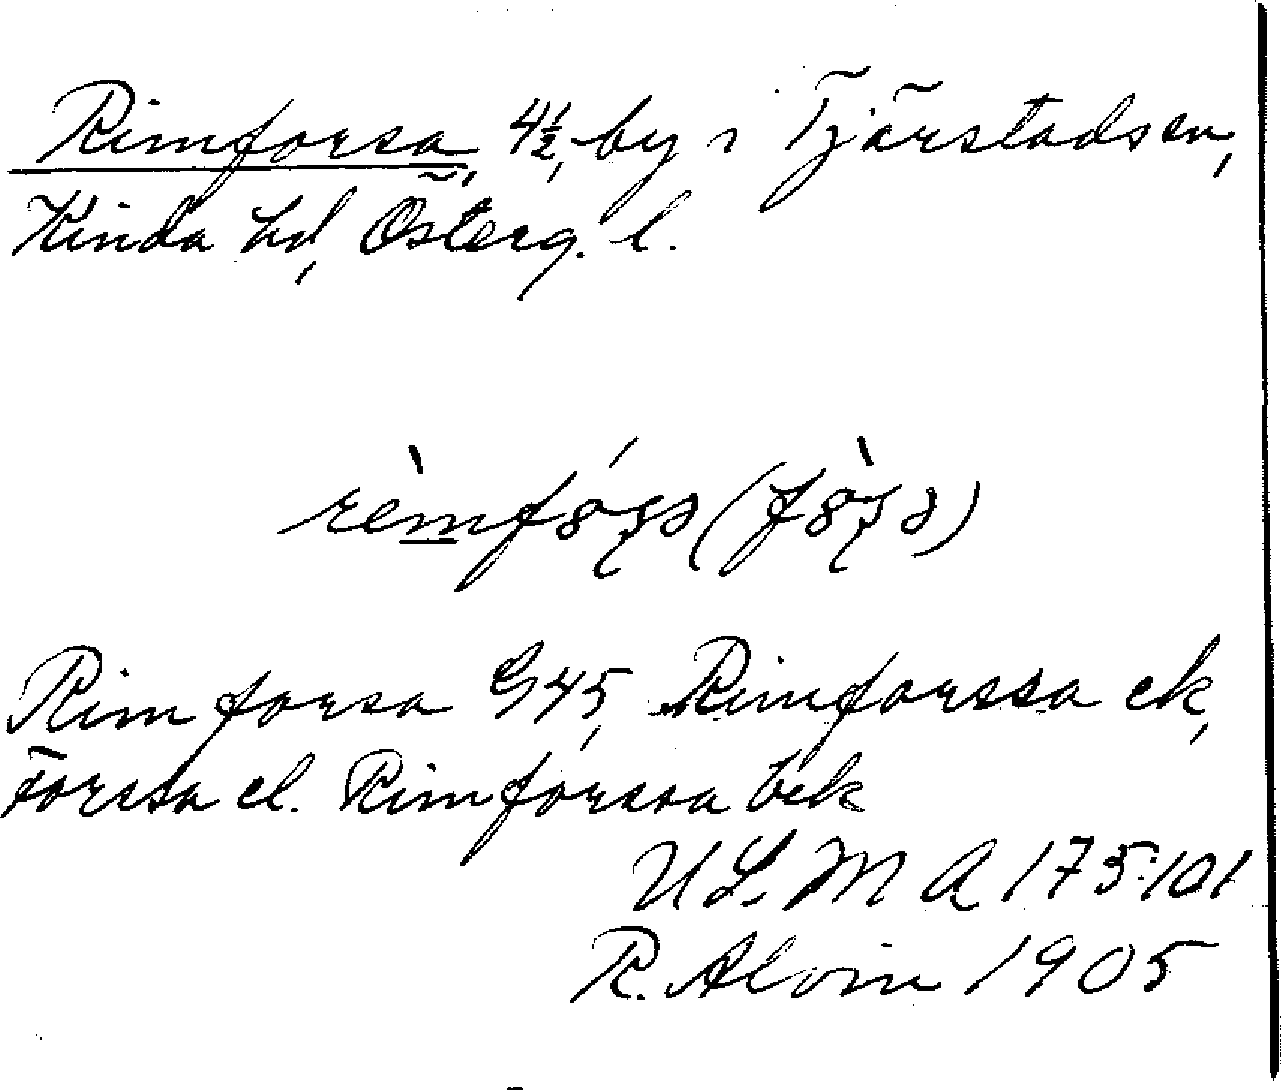 Rimforsa, 4½, by i Tjärstads sn,
Kinda hd, Österg. l.
Rimforsa G45, Rimforssa ek,
Forssa el. Rimforssa bek
ULMA 175:101
R. Alvin 1905